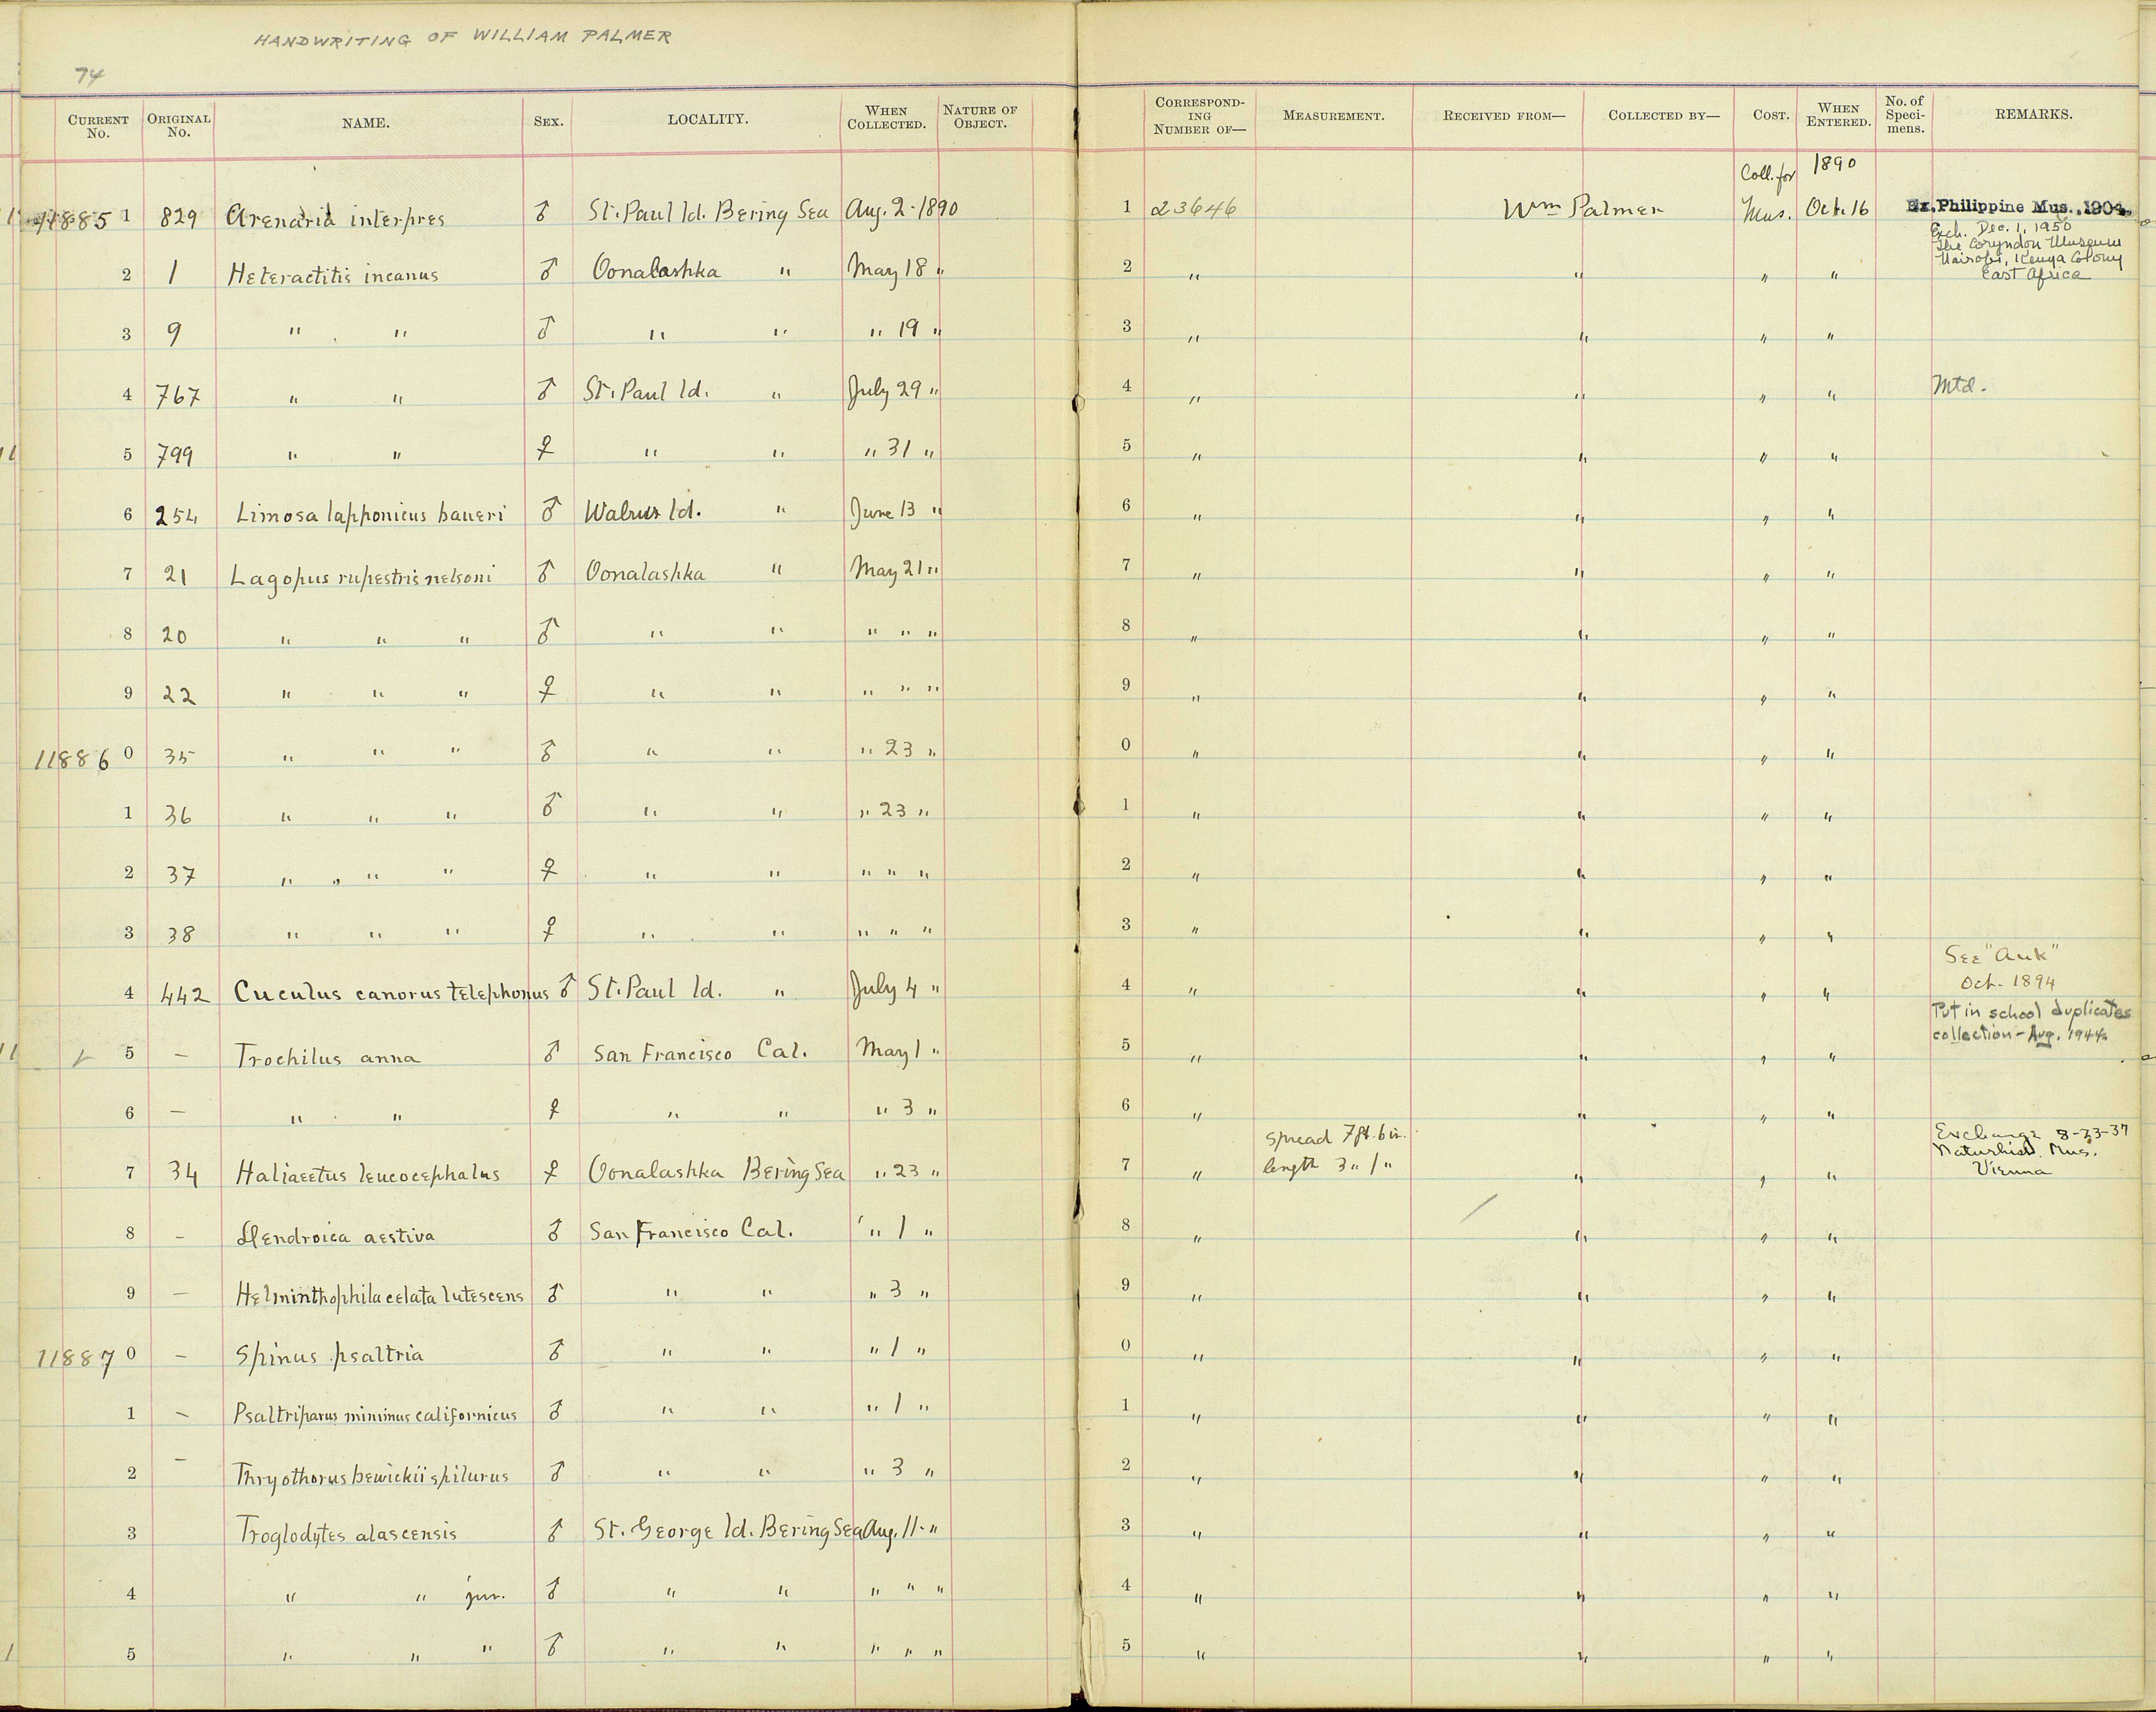 HANDWRITING OF WILLIAM PALMER
74
CURRENT No. ORIGINAL No. NAME. SEX. LOCALITY. WHEN COLLECTED. NATURE OF OBJECT. CORRESPONDING NUMBER OF— MEASUREMENT. RECEIVED FROM— COLLECTED BY— COST. WHEN ENTERED. No. of Specimens. REMARKS.
Coll. for 1890
11885 1 829 Arenaria interpres ♂ St. Paul Id. Bering Sea Aug. 2. 1890 1 23646 Wm Palmer Mus. Oct. 16 Ex. Philippine Mus., 1904.
Exch. Dec. 1, 1950
The Coryndon Museum
Nairobi, Kenya Colony
East Africa
2 1 Heteractitis incanus ♂ Oonalashka " May 18 " 2 " " " "
3 9 " " ♂ " " " 19 " 3 " " " "
4 767 " " ♂ St. Paul Id. " July 29 " 4 " " " " Mtd.
5 799 " " ♀ " " " 31 " 5 " " " "
6 254 Limosa lapponicus baueri ♂ Walrus Id. " June 13 " 6 " " " "
7 21 Lagopus rupestris nelsoni ♂ Oonalashka " May 21 " 7 " " " "
8 20 " " " ♂ " " " " " 8 " " " "
9 22 " " " ♀ " " " " " 9 " " " "
11886 0 35 " " " ♂ " " " 23 " 0 " " " "
1 36 " " " ♂ " " " 23 " 1 " " " "
2 37 " " " ♀ " " " " " 2 " " " "
3 38 " " " ♀ " " " " " 3 " " " "
4 442 Cuculus canorus telephonus ♂ St. Paul Id. " July 4 " 4 " " " " See "Auk"
Oct. 1894
5 – Trochilus anna ♂ San Francisco Cal. May 1 " 5 " " " " Put in school duplicates
collection – Aug. 1944.
6 – " " ♀ " " " 3 " 6 " " " "
7 34 Haliaeetus leucocephalus ♀ Oonalashka Bering Sea " 23 " 7 " spread 7 ft. 6 in.
length 3 " 1 " " " " Exchange 8-23-37
Naturhist. Mus.
Vienna
8 – Dendroica aestiva ♂ San Francisco Cal. " 1 " 8 " " " "
9 – Helminthophila celata lutescens ♂ " " " 3 " 9 " " " "
11887 0 – Spinus psaltria ♂ " " " 1 " 0 " " " "
1 – Psaltriparus minimus californicus ♂ " " " 1 " 1 " " " "
2 – Thryothorus bewickii spilurus ♂ " " " 3 " 2 " " " "
3 Troglodytes alascensis ♂ St. George Id. Bering Sea Aug. 11. " 3 " " " "
4 " " jun. ♂ " " " " " 4 " " " "
5 " " " ♂ " " " " " 5 " " " "